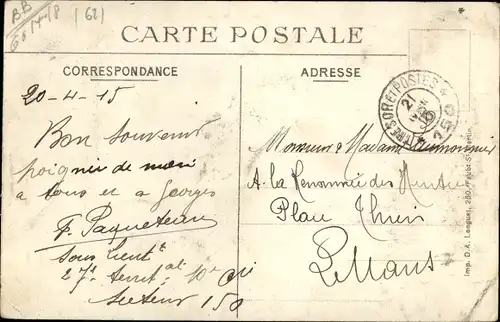 BB
60 14-18 (62)
CARTE POSTALE
CORRESPONDANCE
ADRESSE
20-4-15
Bon souvenir
poignée de main
a tous et a Georges
sous lieut
27e territ al 10e Cie
Secteur 150
TRESOR ET POSTES
21
150
Monsieur & Madame
A la Renommée des
Place Thiers
Le Mans
Imp. D.A. Longuet, 250, Faub St-Martin